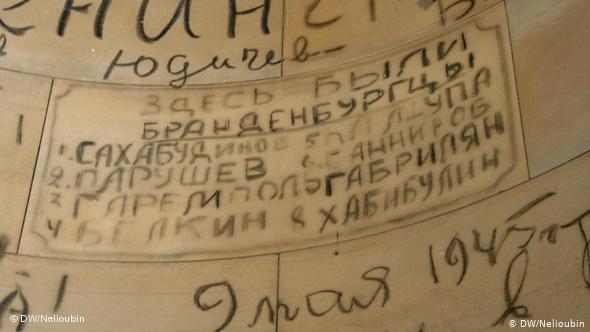 Юдичев
ЗДЕСЬ БЫЛИ
БРАНДЕНБУРГЦЫ
1. САХАБУДИНОВ 5
2. ПАРУШЕВ 6. ГАННИРОВ
3 ГАРЕМ ГАБРИЛЯН
4 БЕЛКИН 8 ХАБИБУЛИН
9 мая 1945
© DW/Nelioubin © DW/Nelioubin